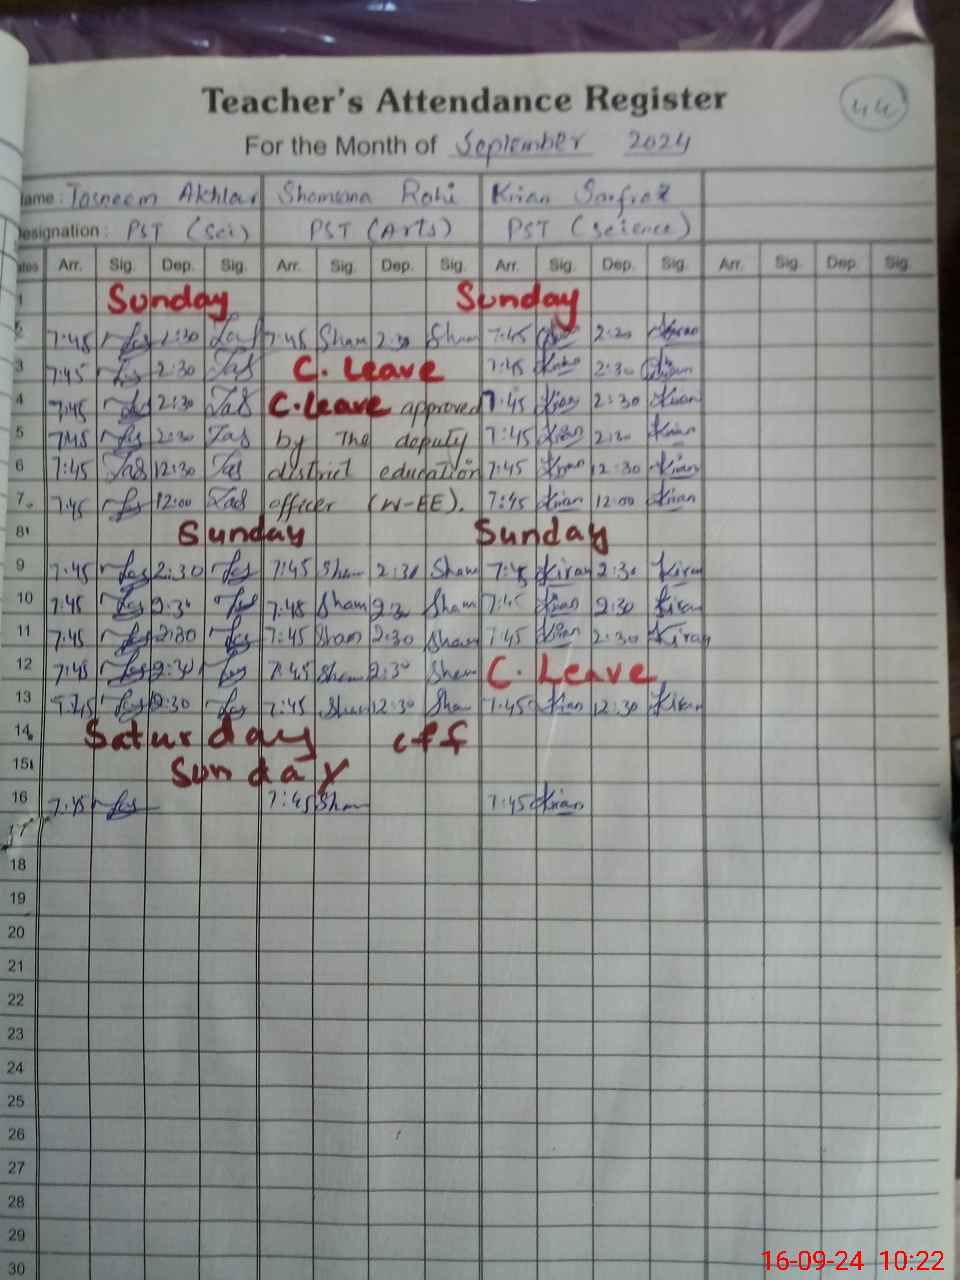 Teacher's Attendance Register
44
For the Month of September 2024
ame: Tasneem Akhtar Shamsana Rahi Kiran Sarfraz
esignation: PST (Sci) PST (Arts) PST (Science)
ates Arr. Sig. Dep. Sig. Arr. Sig. Dep. Sig. Arr. Sig. Dep. Sig. Arr. Sig. Dep. Sig.
1 Sunday Sunday
2 7:45 2:30 7:45 Sham 2:30 Sham 7:45 2:30 Kiran
3 7:45 2:30 Tas C. Leave 7:45 2:30
4 7:45 2:30 Tas C. leave approved 7:45 Kiran 2:30 Kiran
5 7:45 2:30 Tas by The deputy 7:45 Kiran 2:30 Kiran
6 7:45 Tas 12:30 Tas district education 7:45 Kiran 12:30 Kiran
7 7:45 12:00 Tas officer (W-EE). 7:45 Kiran 12:00 Kiran
8 Sunday Sunday
9 7:45 2:30 7:45 Sham 2:30 Sham 7:45 Kiran 2:30 Kiran
10 7:45 2:30 7:45 Sham 2:30 Sham 7:45 Kiran 2:30 Kiran
11 7:45 2:30 7:45 Sham 2:30 Sham 7:45 Kiran 2:30 Kiran
12 7:45 2:30 7:45 Sham 2:30 Sham C. Leave
13 7:45 12:30 7:45 Sham 12:30 Sham 7:45 Kiran 12:30 Kiran
14 Saturday off
15 Sunday
16 7:45 7:45 Sham 7:45 Kiran
17
18
19
20
21
22
23
24
25
26
27
28
29
30
16-09-24 10:22